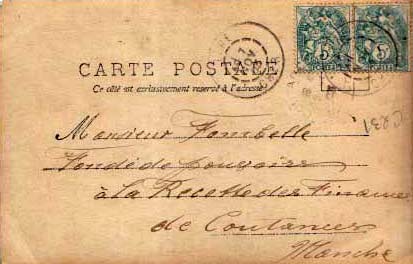 5 5
CARTE POSTALE
Ce côté est exclusivement réservé à l'adresse
Monsieur Fombelle
Fondé de pouvoirs
à la Recette des Finances
de Coutances
Manche